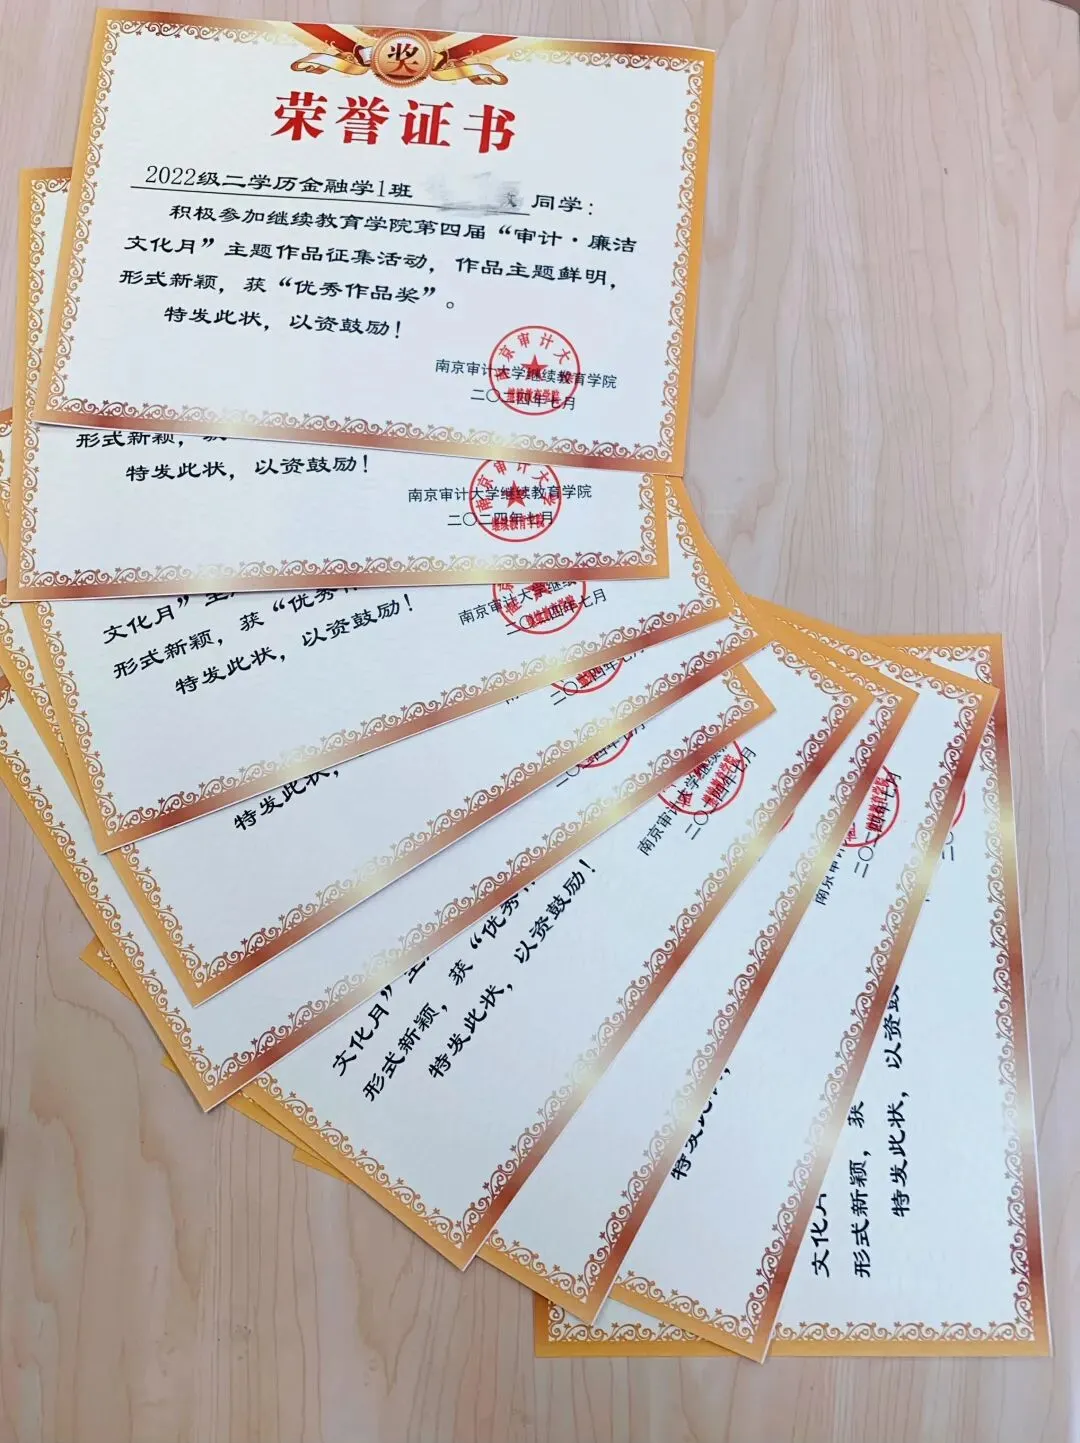 奖
荣誉证书
2022级二学历金融学1班 同学：
积极参加继续教育学院第四届“审计·廉洁
文化月”主题作品征集活动，作品主题鲜明，
形式新颖，获“优秀作品奖”。
特发此状，以资鼓励！
南京审计大学继续教育学院
二〇二四年七月
南京审计大
继续教育学院
形式新颖，获
特发此状，以资鼓励！
南京审计大学继续教育学院
二〇二四年七月
南京审计大学
继续教育学院
文化月”主
形式新颖，获“优秀
特发此状，以资鼓励！
南京审计大学继续
二〇二四年七月
继续教育学院
二〇二四年七月
特发此状，
二〇二四年七月
文化月”主
形式新颖，获“优秀
特发此状，以资鼓励！
南京审计大学继续
二〇二四年七月
继续教育学院
特发此状，
南京审计
二〇二四年七月
继续教育学院
文化月
形式新颖，获
特发此状，以资鼓